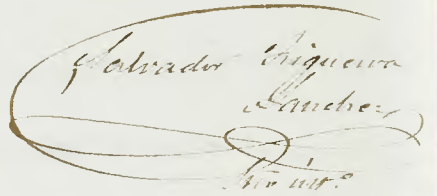 Salvador Figueroa
Sanchez
Srio intº